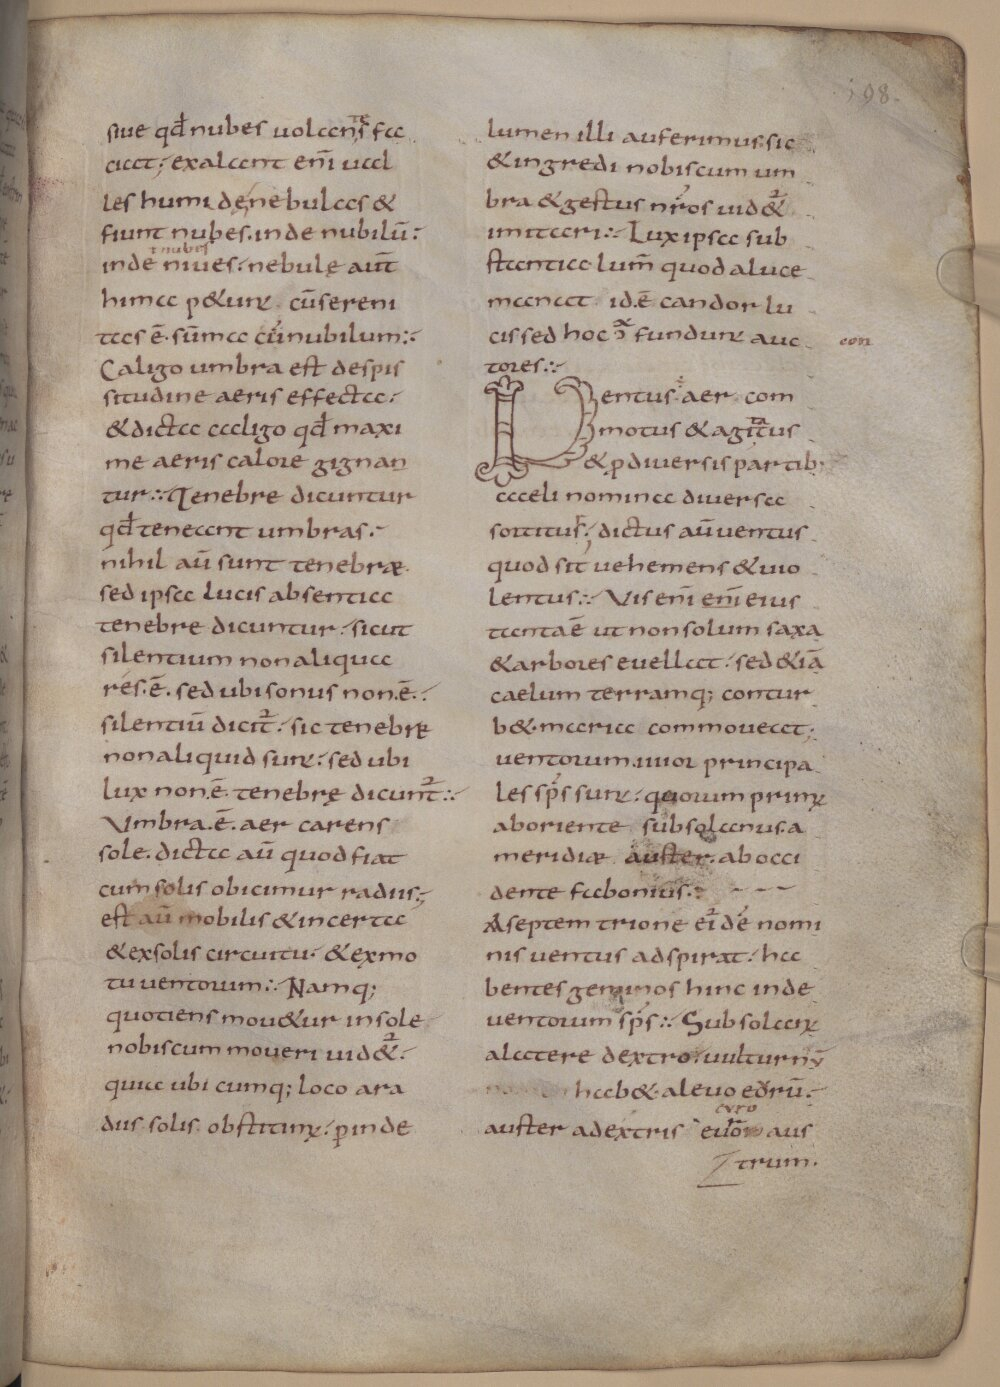 198.
siue qđ nubes uolan̄s fa
ciat; exalant enī ual
les humi de nebulas &
fiunt nubes. inde nubilū:
inde niues: nebule aut̄
hima p&unt cū sereni
tas ē. sūma cū nubilum:
Caligo umbra est despis
situdine aeris effecta:
& dicta caligo qđ maxi
me aeris calore gignan
tur: Tenebre dicuntur
qđ teneant umbras:
nihil aū sunt tenebræ.
sed ipsa lucis absentia
tenebre dicuntur: sicut
silentium non aliqua
res. ē. sed ubi sonus non. ē.
silentiū dicit᷑: sic tenebrę
non aliquid sunt: sed ubi
lux non. ē. tenebrę dicunt᷑:
Vmbra. ē. aer carens
sole. dicta aū quod fiat
cum solis obicimur radiis;
est aū mobilis & incerta
& ex solis circuitu. & ex mo
tu uentorum: Namq;
quotiens mou&ur in sole
nobiscum moueri uid&᷑:
quia ubi cumq; loco ara
diis solis obstitim᷒: ꝑinde
lumen illi auferimus. sic
& ingredi nobiscum um
bra & gestus nr̄os uid&᷑
imitari: Lux ipsa sub
stantia lum̄ quod a luce
manat idē candor lu
cis sed hoc ɔ᷒ fundunt auc
con
tores:
Uentus. aer com
motus & agitatus
& ꝓ diuersis partib;
caeli nomina diuersa
sortitus; dictus aū uentus
quod sit uehemens & uio
lentus: Vis enī enī eius
tanta ē ut non solum saxa
& arbores euellat: sed & iā
caelum terramq; contur
b&. maria commoueat;
uentorum. iiiior principa
les sp̄s sunt: quorum prim᷒
ab oriente subsolanus. a
meridiæ auster. ab occi
dente fabonius: - - -
A septem trione ei᷑dē nomi
nis uentus adspirat: ha
bentes geminos hinc inde
uentorum sp̄s: Subsolan᷒
a latere dextro. uulturnū
hab& a leuo eđrū:
euro
auster a dextris aus
trum.